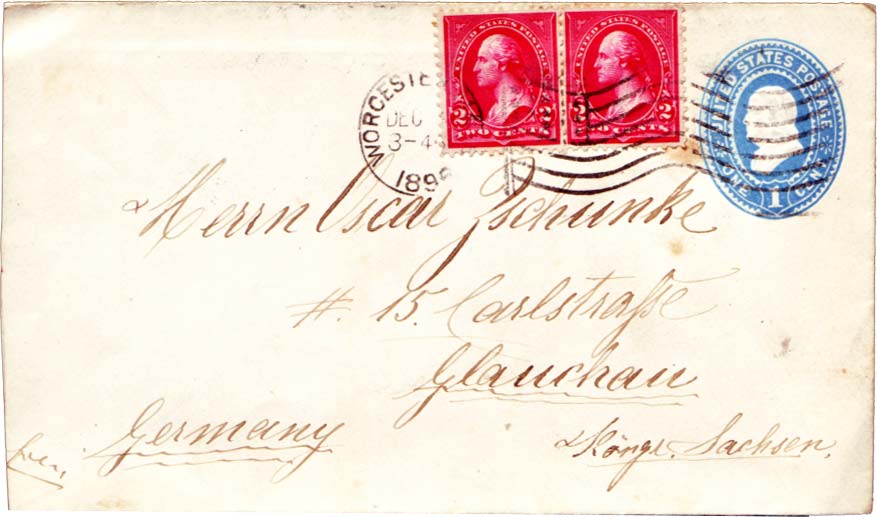 UNITED STATES POSTAGE
2 2
TWO CENTS
UNITED STATES POSTAGE
2 2
TWO CENTS
UNITED STATES POSTAGE
ONE 1 CENT
WORCESTER
DEC
3-4
189
Herrn Oscar Zschunke
#. 15. Carlstraſse
Glauchau
Germany
Köngr. Sachsen.